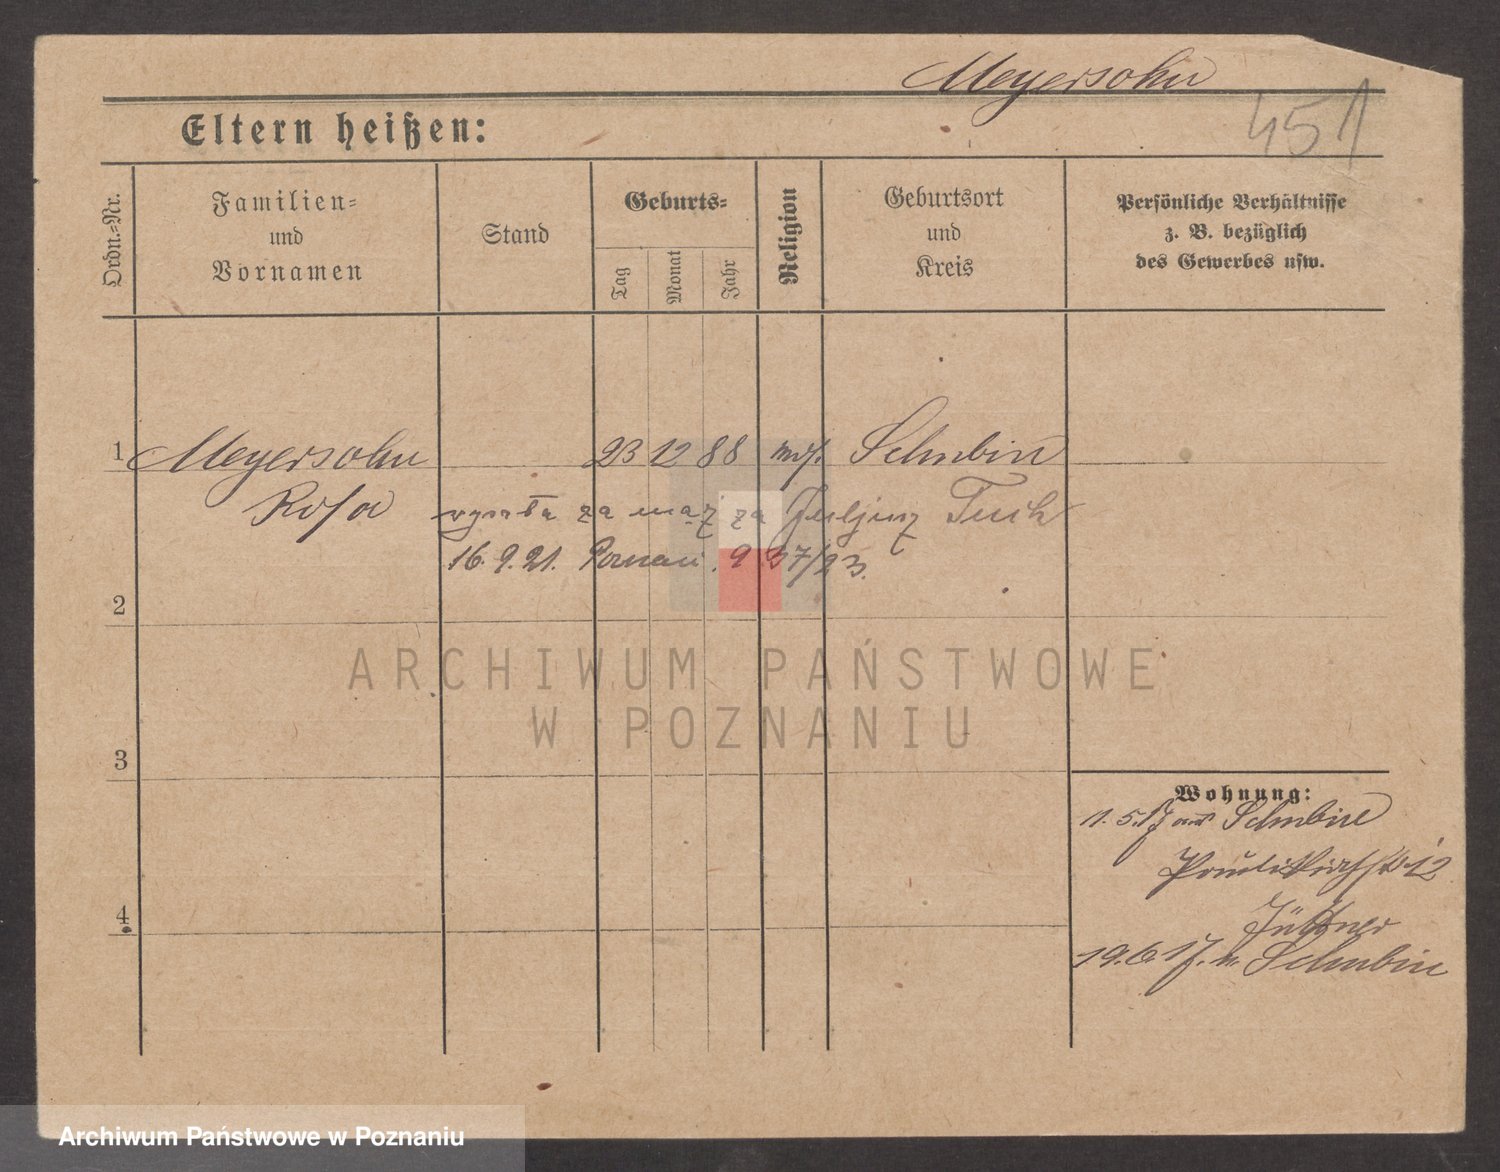 Meyersohn
451
Eltern heißen:
Ordn.-Nr.
Familien-
und
Vornamen
Stand
Geburts-
Tag
Monat
Jahr
Religion
Geburtsort
und
Kreis
Persönliche Verhältnisse
z. B. bezüglich
des Gewerbes usw.
1 Meyersohn 23 12 88 mos. Schubin
Rosa wyszła za mąż za Juljusz Tuch
16.9.21. Poznań. 9 37/23.
2
3
4
Wohnung:
1.5.17 aus Schubin
Paulikirchstr 12
Jüttner
19.6.17. n. Schubin
ARCHIWUM PAŃSTWOWE
W POZNANIU
Archiwum Państwowe w Poznaniu